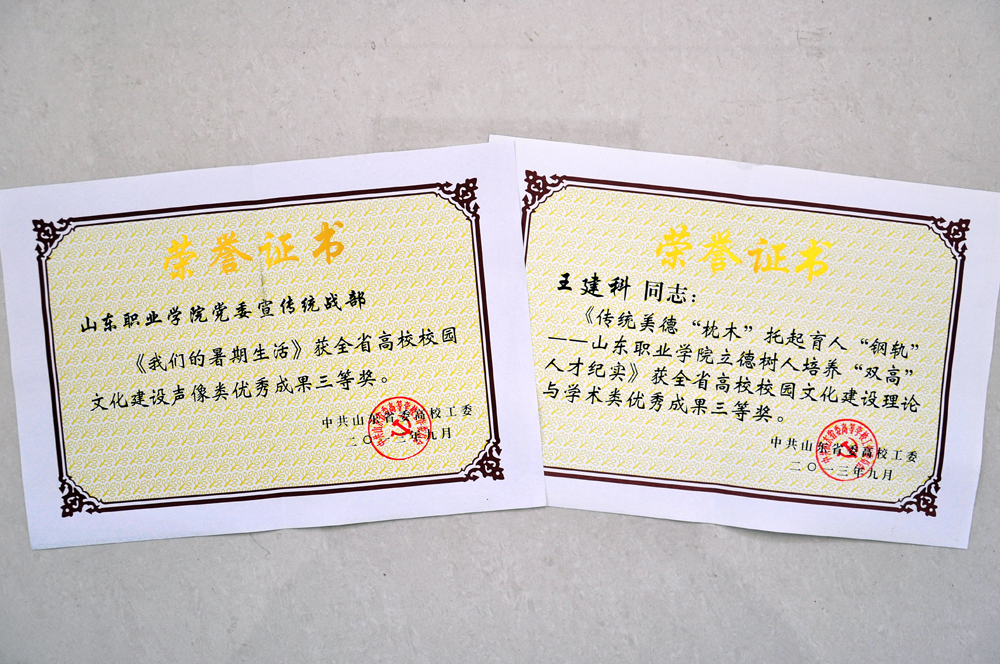 荣誉证书
山东职业学院党委宣传统战部
《我们的暑期生活》获全省高校校园
文化建设声像类优秀成果三等奖。
中共山东省委高校工委
二〇一三年九月
荣誉证书
王建科 同志：
《传统美德“枕木”托起育人“钢轨”
——山东职业学院立德树人培养“双高”
人才纪实》获全省高校校园文化建设理论
与学术类优秀成果三等奖。
中共山东省委高校工委
二〇一三年九月